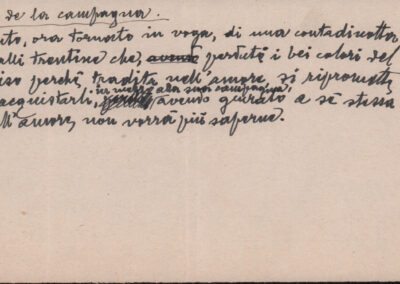 de la campagna.
to, ora tornato in voga, di una contadinotta
lli trentine che, avendo perdute i bei colori del
iso perchè tradita nell'amore, si ripromette
acquistarli, in mezzo alla sua campagna,
avendo giurato a sè stessa
ll'amore, non vorrà più saperne.